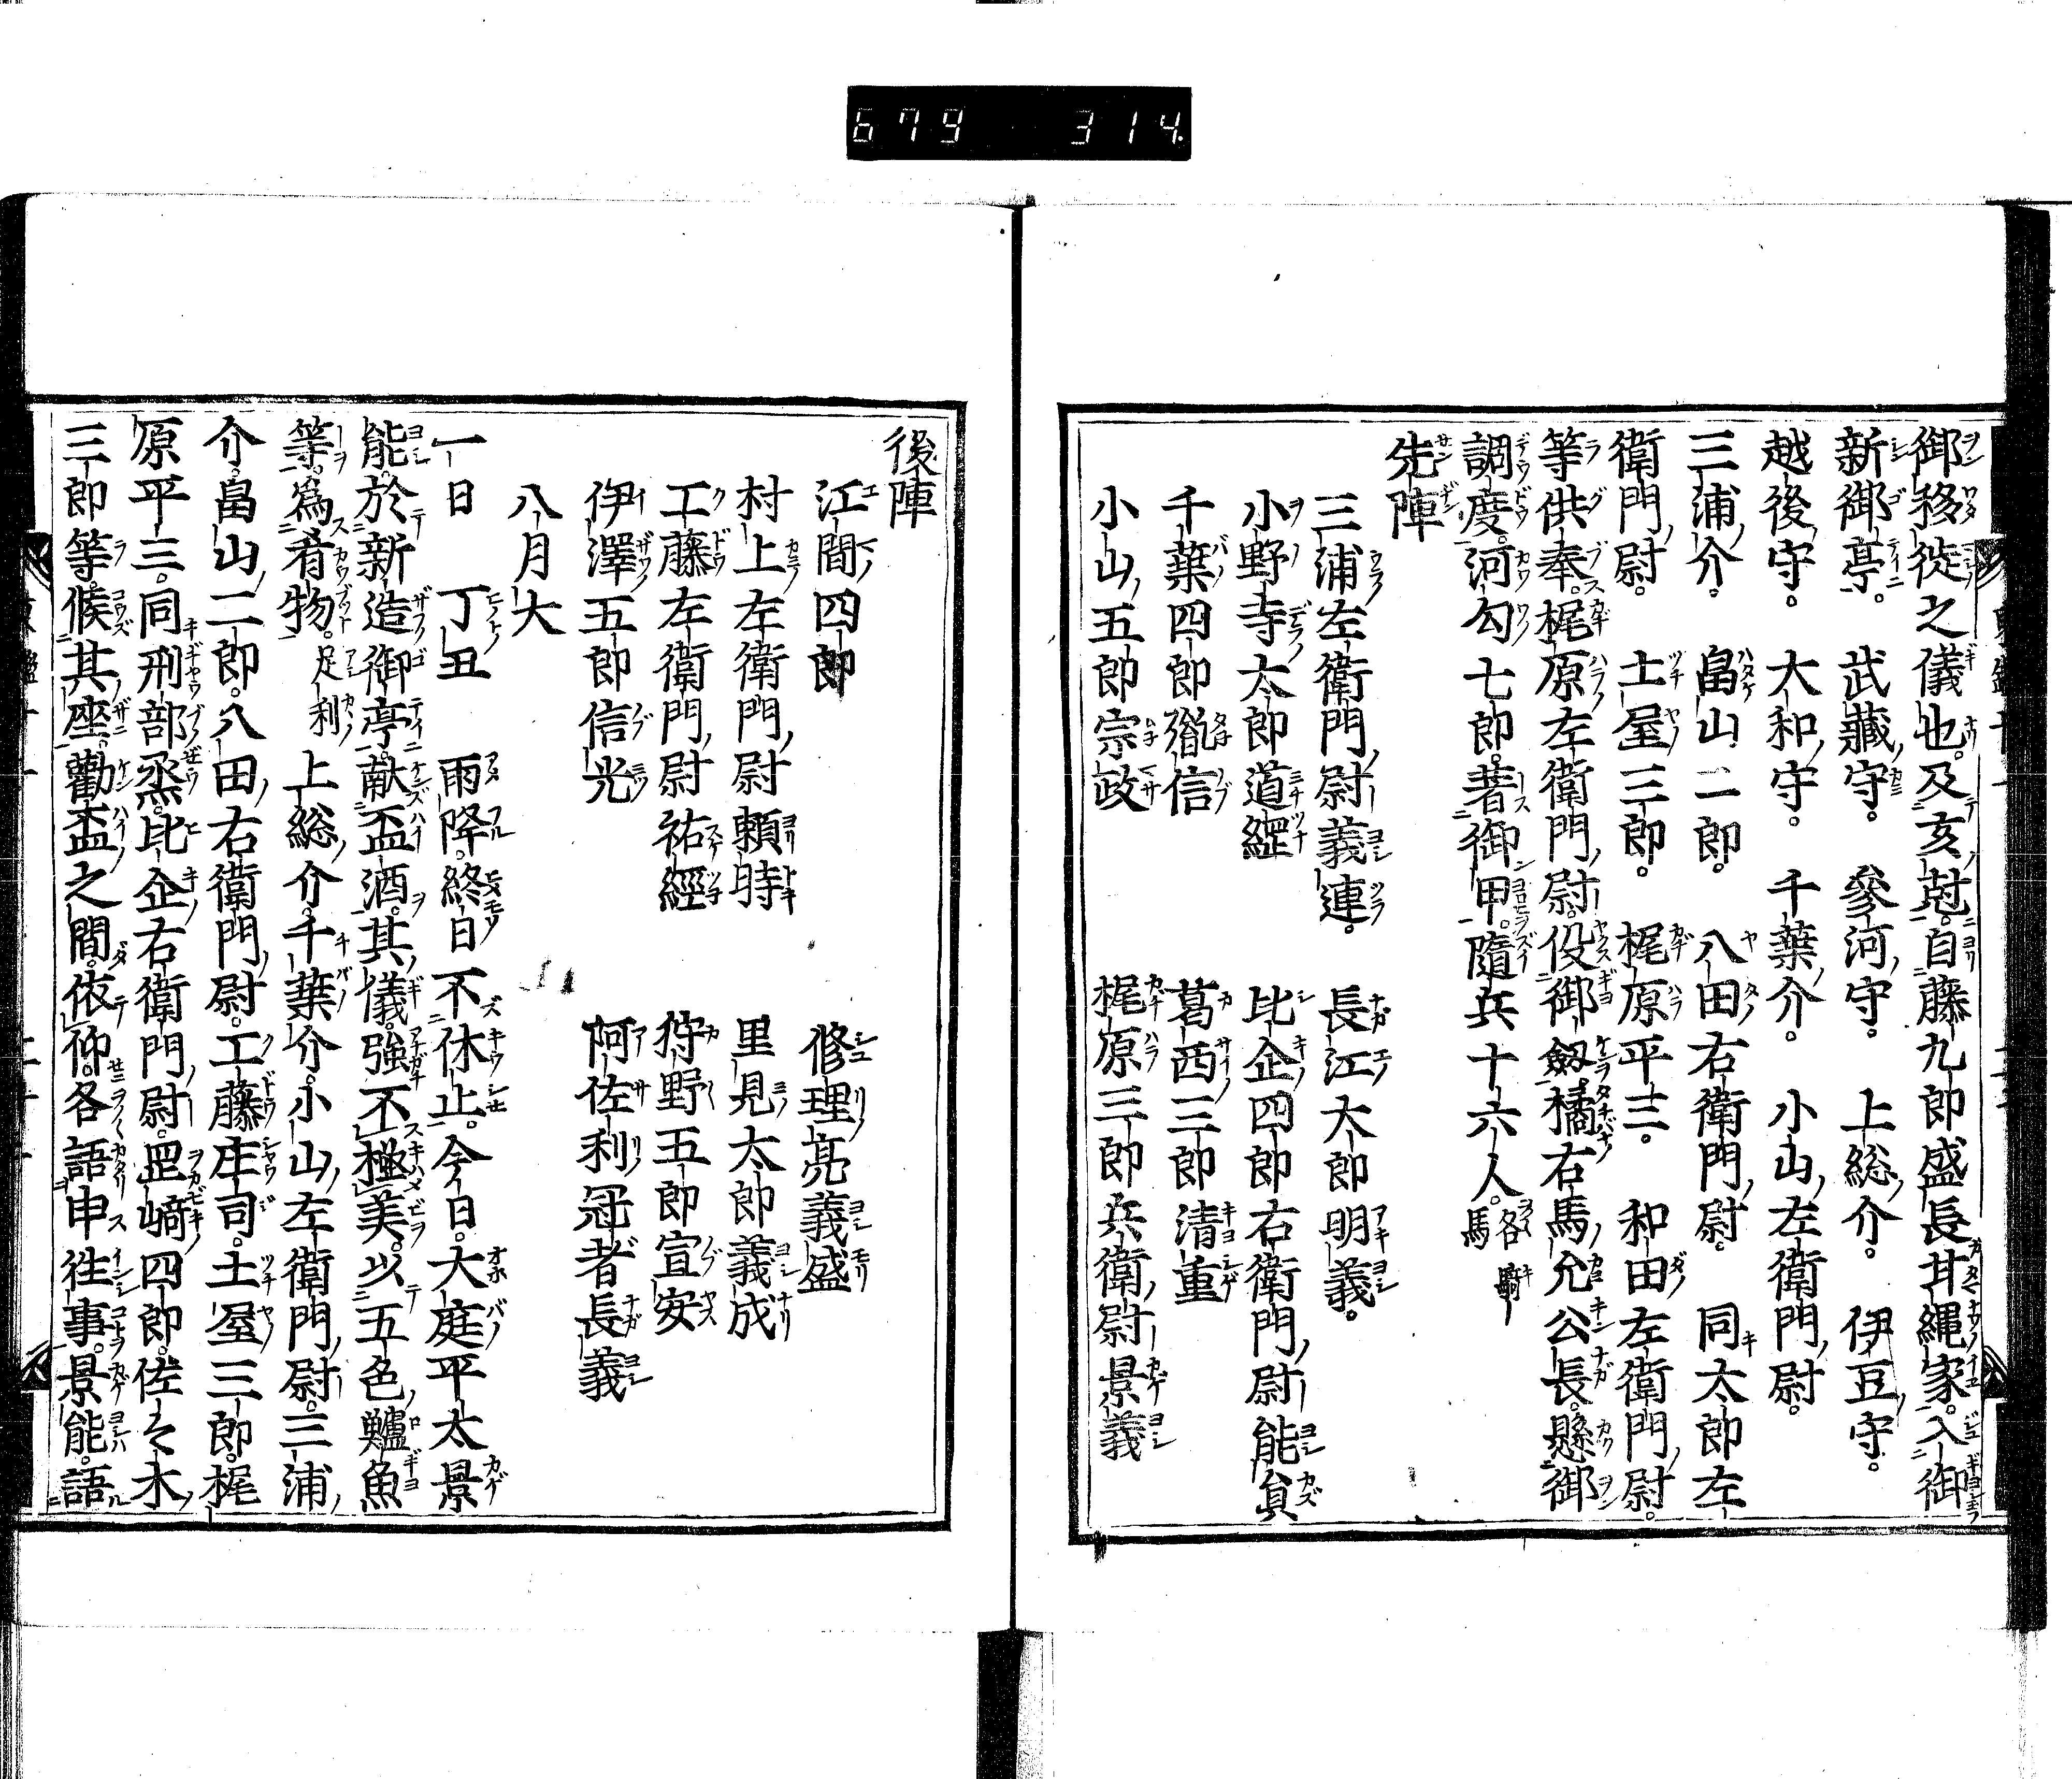 679 314
御移徙之儀也。及亥尅。自藤九郎盛長甘縄家。入御
新御亭。 武藏守。 參河守。 上総介。 伊豆守。
越後守。 大和守。 千葉介。 小山左衛門尉。
三浦介。 畠山二郎。 八田右衛門尉。 同太郎左
衛門尉。 土屋三郎。 梶原平三。 和田左衛門尉。
等供奉。梶原左衛門尉。役御劔。橘右馬允公長。懸御
調度。河勾七郎。著御甲。隨兵十六人。各騎馬
先陣
三浦左衛門尉義連。 長江太郎明義。
小野寺太郎道綱 比企四郎右衛門尉能員
千葉四郎胤信 葛西三郎清重
小山五郎宗政 梶原三郎兵衛尉景義
後陣
江間四郎 修理亮義盛
村上左衛門尉頼時 里見太郎義成
工藤左衛門尉祐經 狩野五郎宣安
伊澤五郎信光 阿佐利冠者長義
八月大
一日 丁丑 雨降。終日不休止。今日。大庭平太景
能。於新造御亭。献盃酒。其儀。強不極美。以五色鱸魚
等。爲肴物。足利上総介。千葉介。小山左衛門尉。三浦
介。畠山二郎。八田右衛門尉。工藤庄司。土屋三郎。梶
原平三。同刑部烝。比企右衛門尉。罡﨑四郎。佐々木
三郎等。候其座。勸盃之間。依仰。各語申往事。景能。語